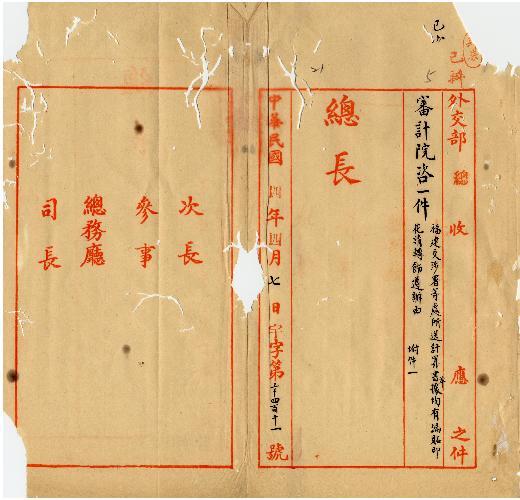 已辦
外交部總收應之件
審計院咨一件
福建交涉署等處所送計算書據均有漏貼印
花請轉飭遵辦由 附件一
總長
中華民國四年四月七日字字第二千四百十一號
次長
參事
總務廳
司長